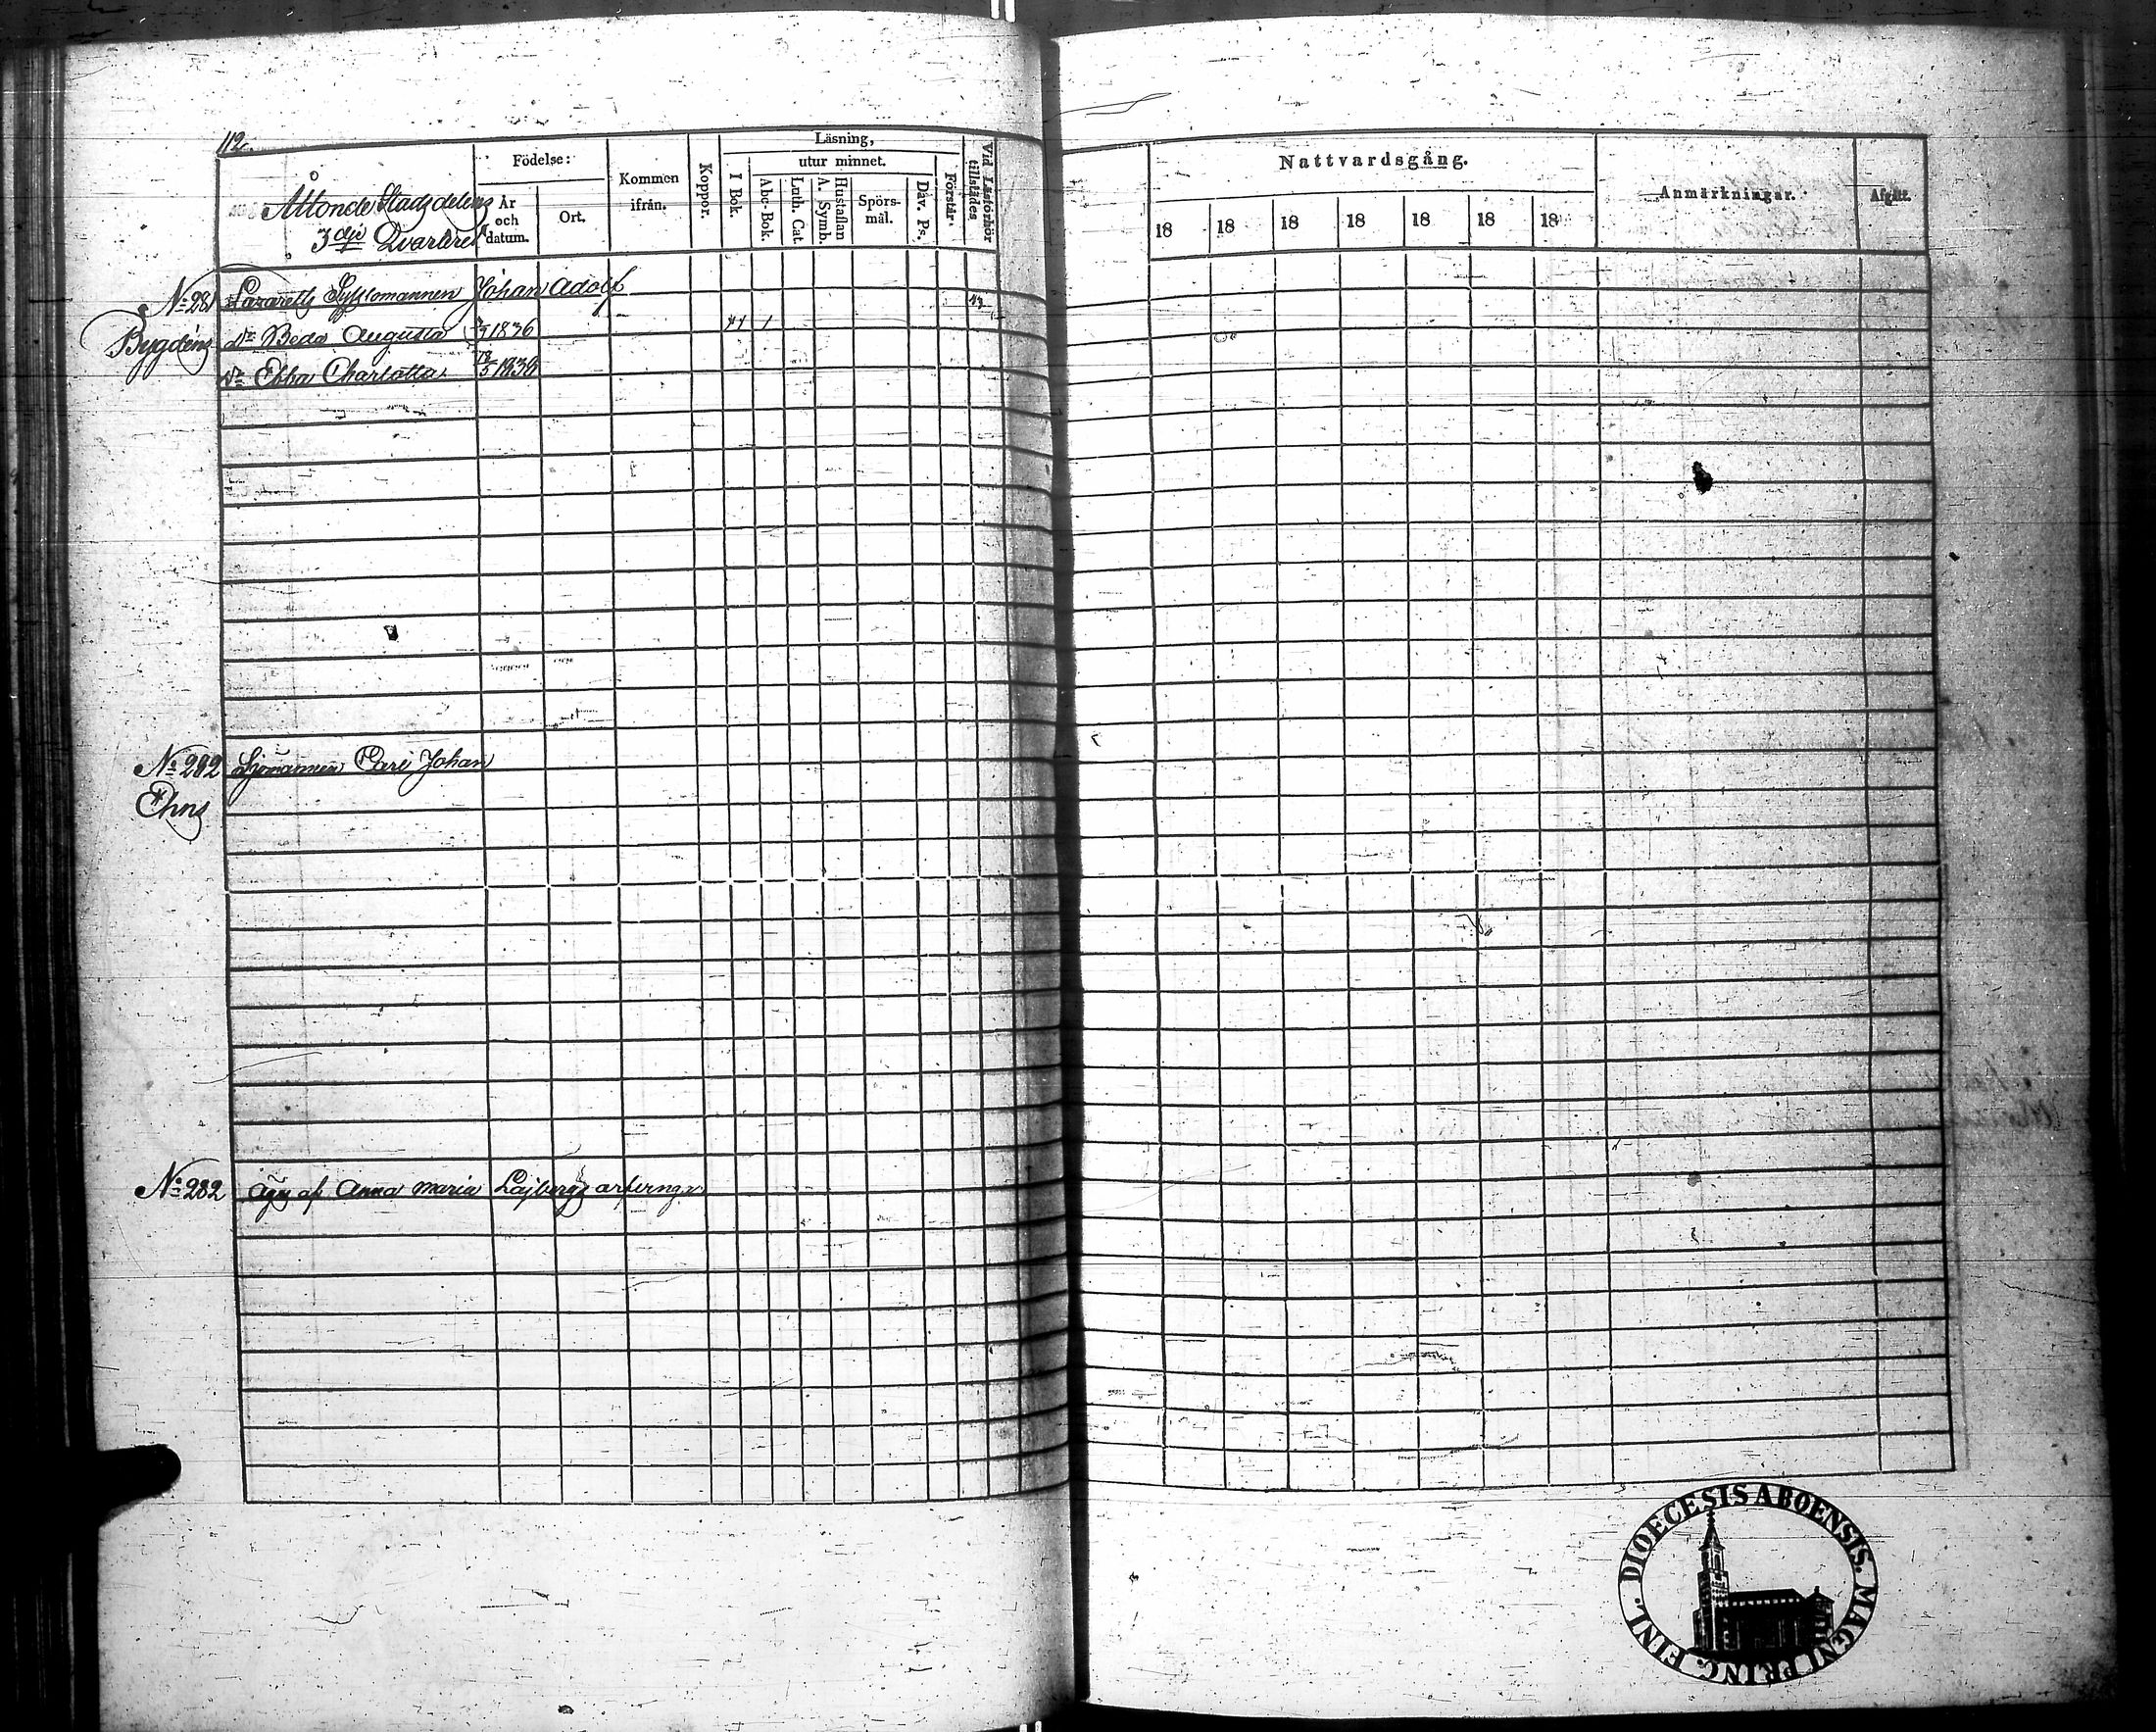 112.
Åttonde Stadsdelens
3dje Qvarteret
Födelse:
År och datum.
Ort.
Kommen ifrån.
Koppor.
Läsning,
I Bok.
utur minnet.
Abc-Bok.
Luth. Cat.
Hustaflan
A. Symb.
Spörs-
mål.
Dav. Ps.
Förstår.
Vid Läsförhör
tillstädes
Nattvardsgång.
18 18 18 18 18 18 18
Anmärkningar.
Afgått.
No 281 Lazaretts Sysslomannen Johan Adolf
43
Bygdéns
dr Beda Augusta 1836 44 1
dr Ebba Charlotta 18/5 1839
No 282 Sjömannen Carl Johan
Ehns
No 282 äges af Anna Maria Lajbergs arfvingar
DIOECESIS ABOENSIS. MAGNI PRINC. FINL.